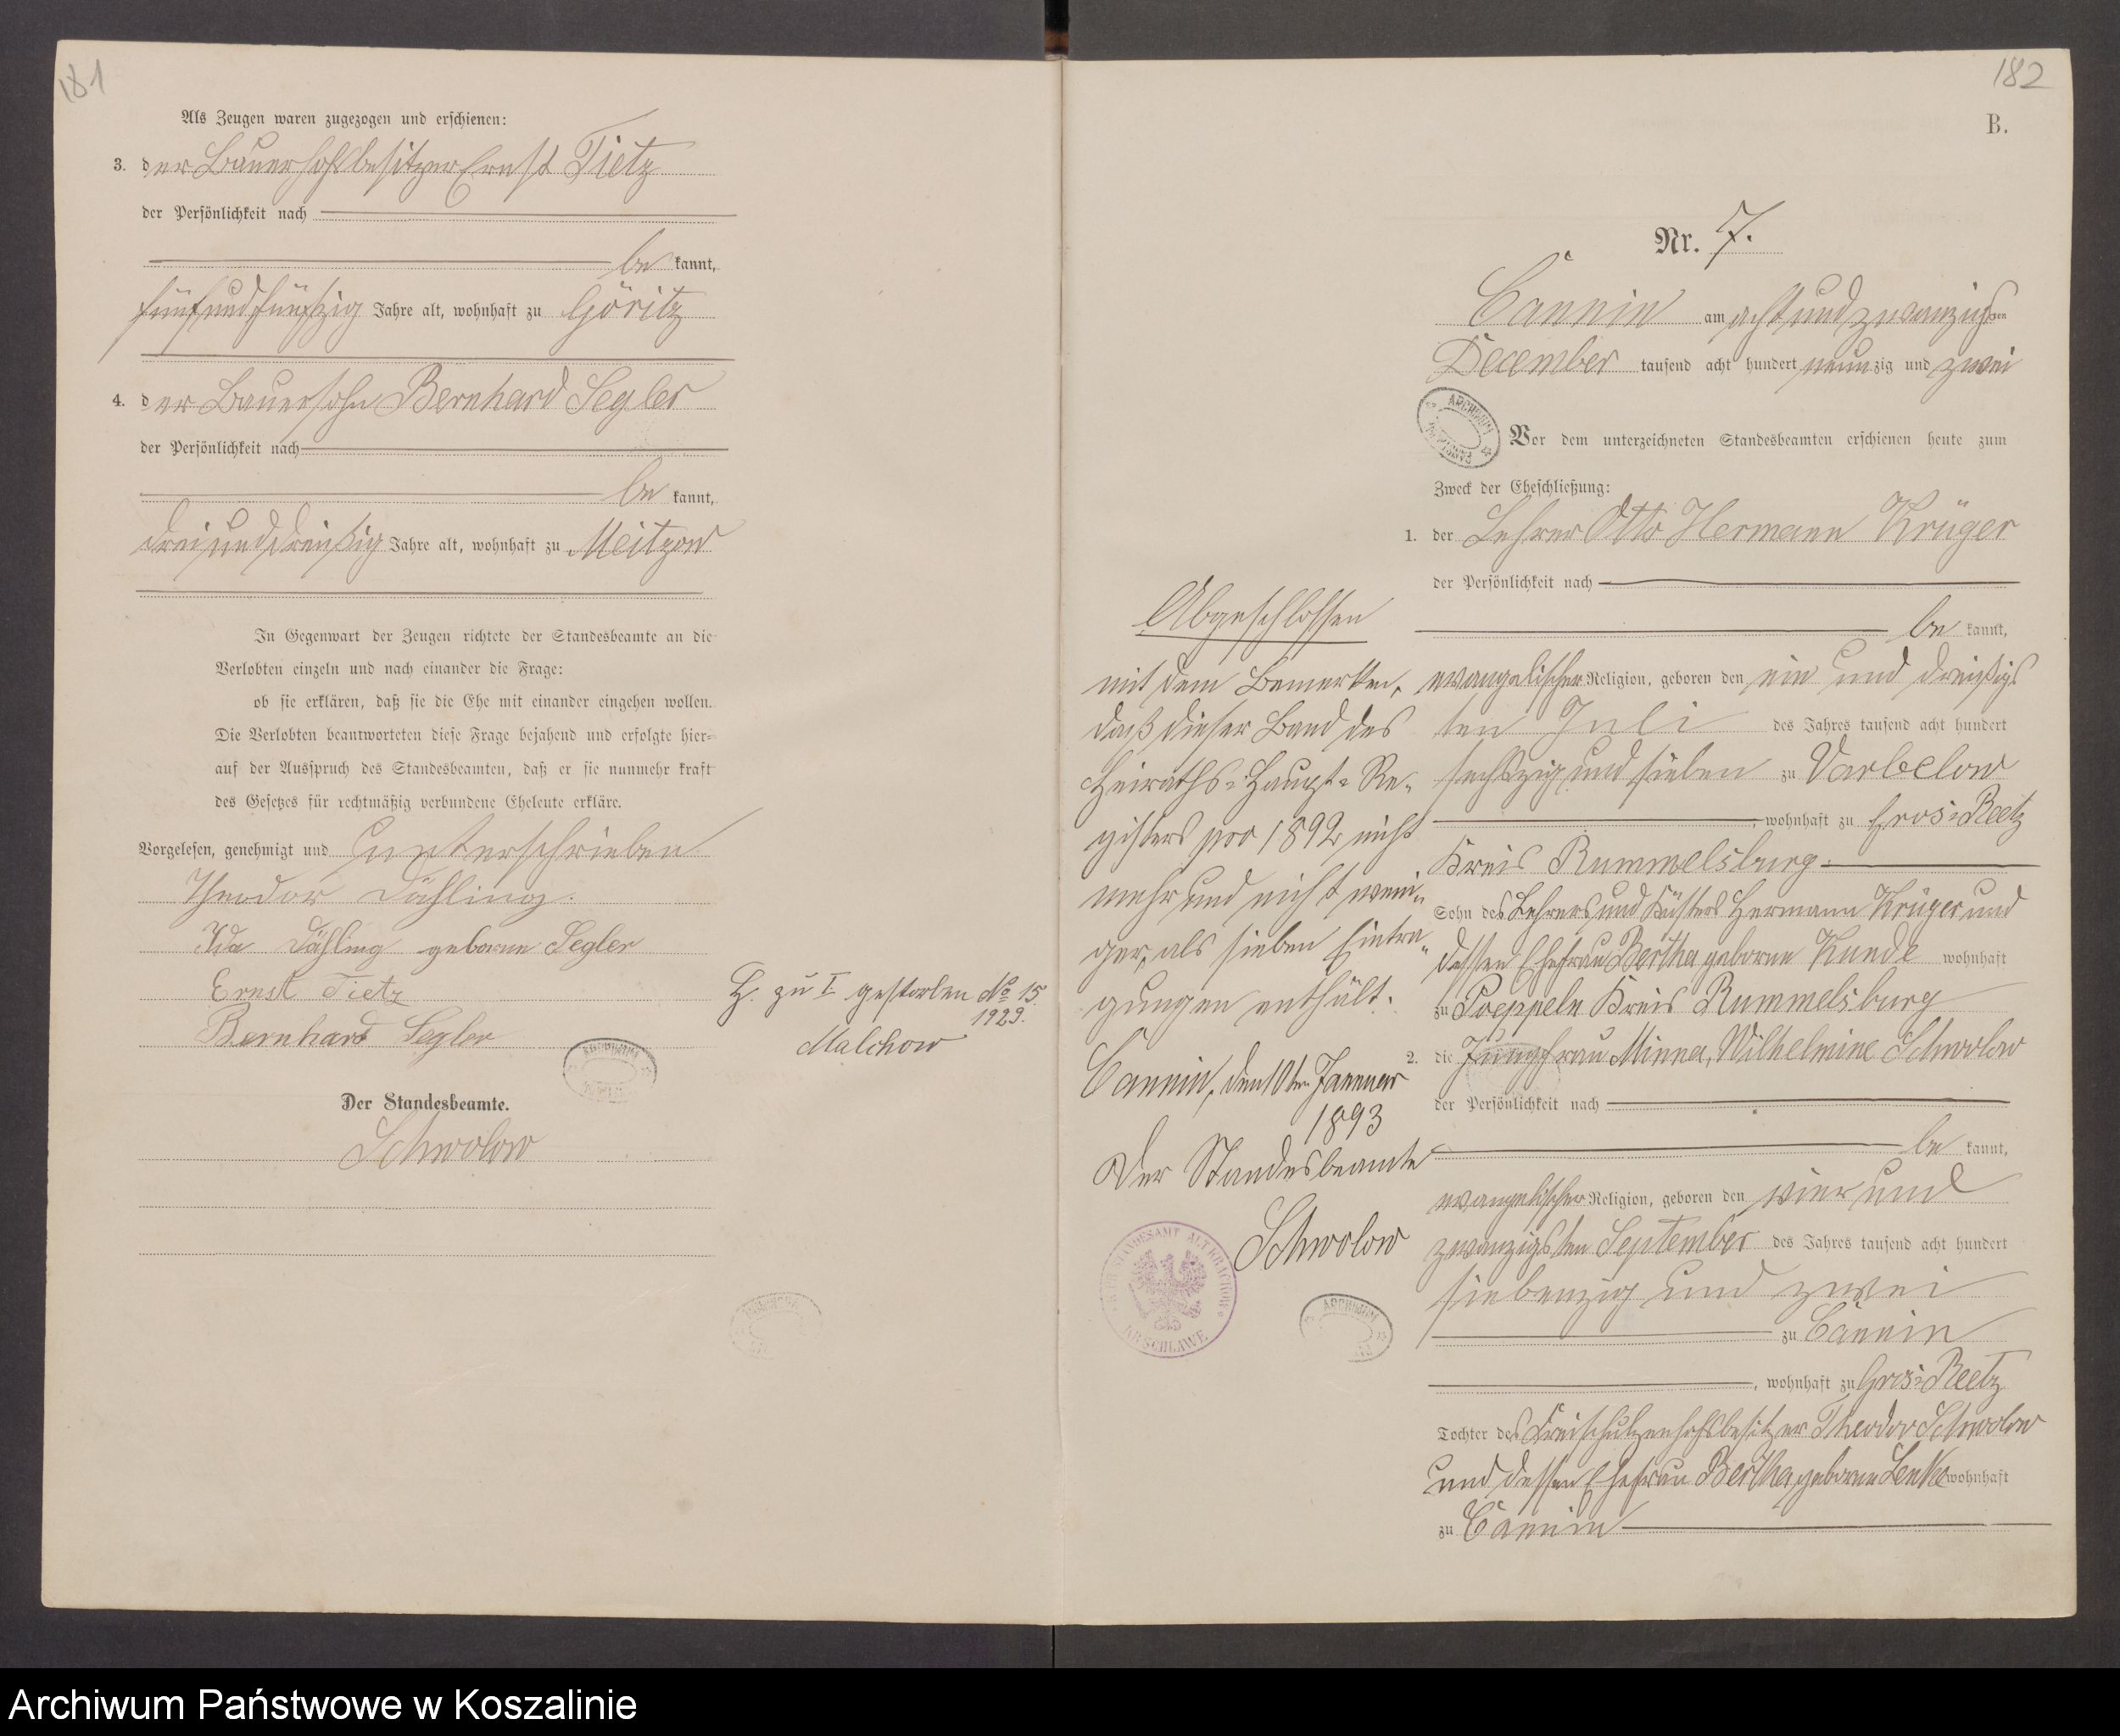 181
Als Zeugen waren zugezogen und erschienen:
3. der Bauerhofsbesitzer Ernst Tietz
der Persönlichkeit nach
be kannt,
fünf und fünfzig Jahre alt, wohnhaft zu Göritz
4. der Bauersohn Bernhard Segler
der Persönlichkeit nach
be kannt,
drei und dreißig Jahre alt, wohnhaft zu Meitzow
In Gegenwart der Zeugen richtete der Standesbeamte an die
Verlobten einzeln und nach einander die Frage:
ob sie erklären, daß sie die Ehe mit einander eingehen wollen.
Die Verlobten beantworteten diese Frage bejahend und erfolgte hier-
auf der Ausspruch des Standesbeamten, daß er sie nunmehr kraft
des Gesetzes für rechtmäßig verbundene Eheleute erkläre.
Vorgelesen, genehmigt und unterschrieben
Theodor Dähling.
Ida Dähling geborne Segler
Ernst Tietz
Bernhard Segler
Der Standesbeamte.
Schwolow
H. zu I. gestorben No 15.
1929.
Malchow
182
B.
Nr. 7.
Cannin am acht und zwanzigsten
December tausend acht hundert neunzig und zwei
Vor dem unterzeichneten Standesbeamten erschienen heute zum
Zweck der Eheschließung:
1. der Lehrer Otto Hermann Krüger
der Persönlichkeit nach
be kannt,
evangelischer Religion, geboren den ein und dreißigs
ten Juli des Jahres tausend acht hundert
sechszig und sieben zu Varbelow
, wohnhaft zu Gros-Reetz
Kreis Rummelsburg.
Sohn des Lehrers und Küsters Hermann Krüger und
dessen Ehefrau Bertha geborne Kunde wohnhaft
zu Poeppeln Kreis Rummelsburg
2. die Jungfrau Minna, Wilhelmine Schwolow
der Persönlichkeit nach
be kannt,
evangelischer Religion, geboren den vier und
zwanzigsten September des Jahres tausend acht hundert
siebenzig und zwei
zu Cannin
, wohnhaft zu Gros-Reetz
Tochter des Freischulzenhofsbesitzer Theodor Schwolow
und dessen Ehefrau Bertha geborne Lenke wohnhaft
zu Cannin
Abgeschlossen
mit dem Bemerken,
daß dieser Band des
Heiraths-Haupt-Re-
gisters pro 1892 nicht
mehr und nicht weni-
ger, als sieben Eintra-
gungen enthält.
Cannin, den 10ten Januar
1893
Der Standesbeamte
Schwolow
STANDESAMT ALT KRACKOW
KR. SCHLAWE
ARCHIWUM
ARCHIWUM
ARCHIWUM
Archiwum Państwowe w Koszalinie